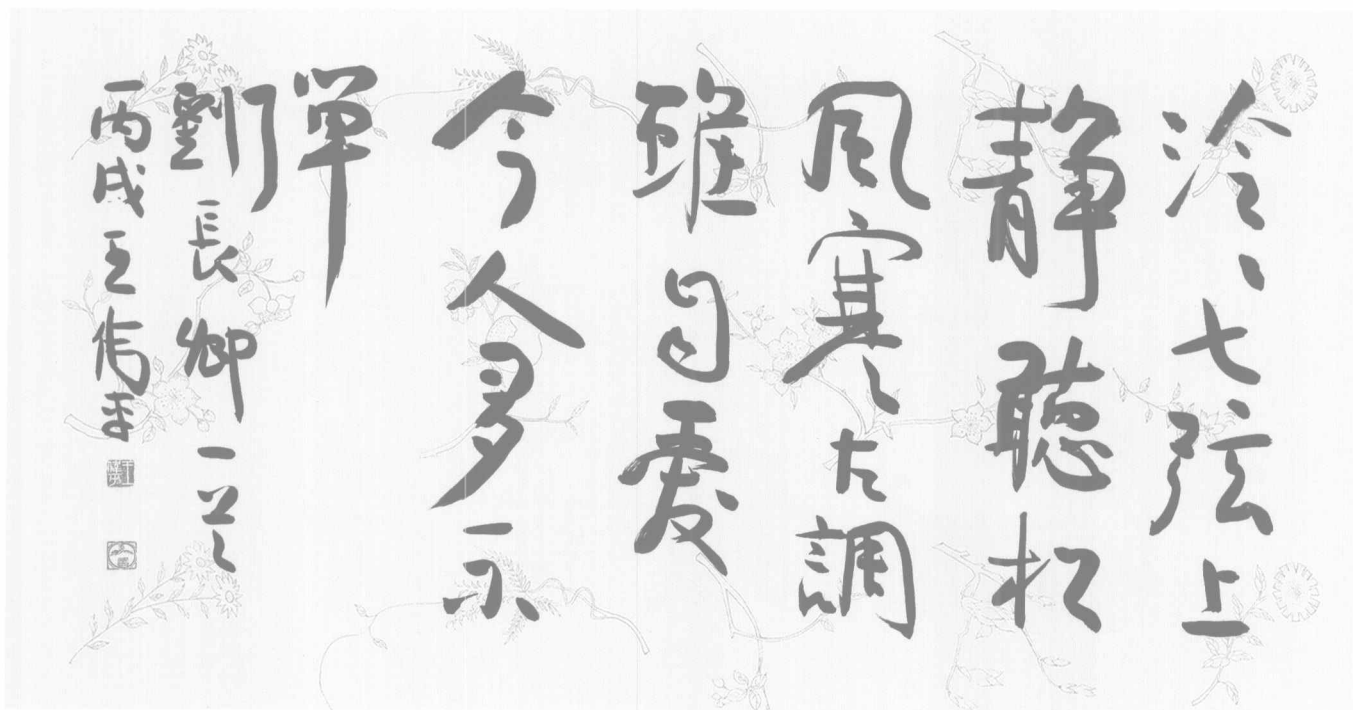 泠泠七弦上
静聽松
風寒古調
雖自愛
今人多不
彈
劉長卿一首
丙戌王偉平